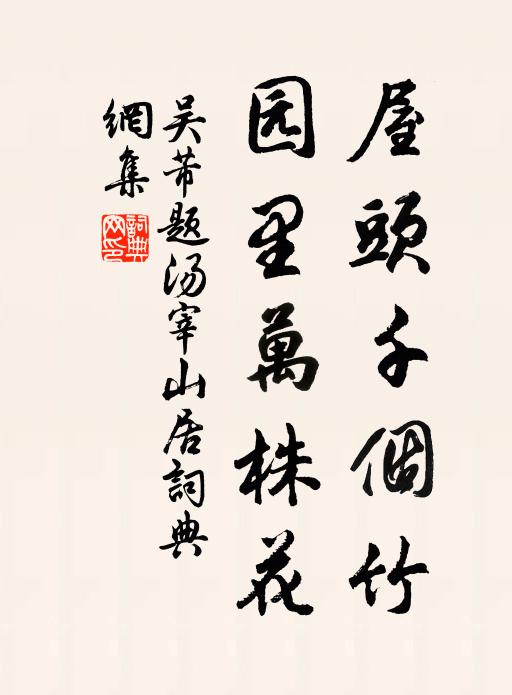 屋頭千個竹
园里萬株花
吴芾题汤宰山居詞典
網集
詞典
网印